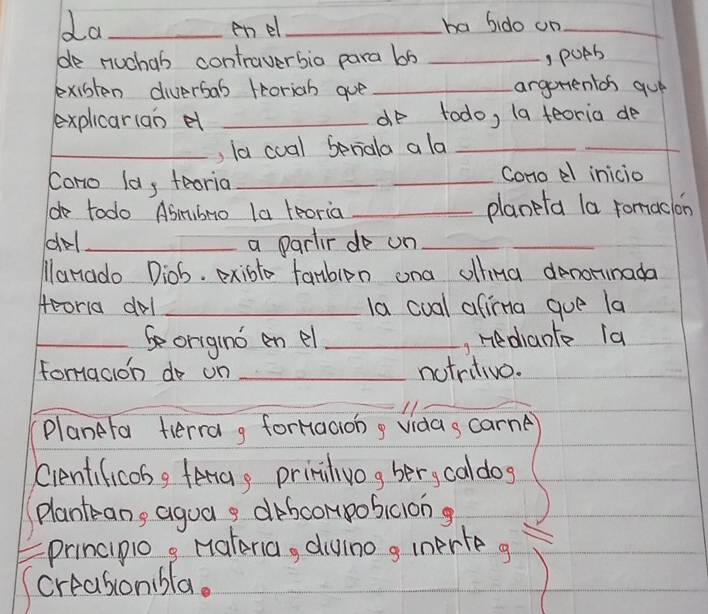 La ________ en el ____________ ha sido un ________
de muchas contraversia para los ________, pues
existen diversas teorias que ____________ argumentos que
explicarian el ____________ de todo, la teoria de
____________, la cual señala a la ________ ________
Como la, teoria ____________ ________ como el inicio
de todo Asimismo la teoria ____________ planeta la formación
del ____________ a partir de un ________ ________
llamado Dios. existe tambien una ultima denominada
teoria del ________________ la cual afirma que la
________ se originó en el ____________, mediante la
formación de un ____________ nutritivo.
Planeta tierra, formación, vida, carne
Cientificos, tema, primitivo, ser, caldo,
plantean, agua, descomposición,
principio, materia, divino, inerte,
creasionista.